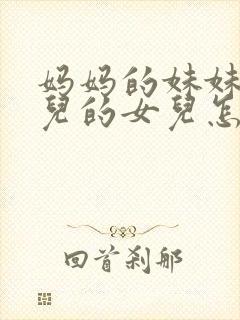 妈妈的妹妹
兒的女兒怎
回首刹那